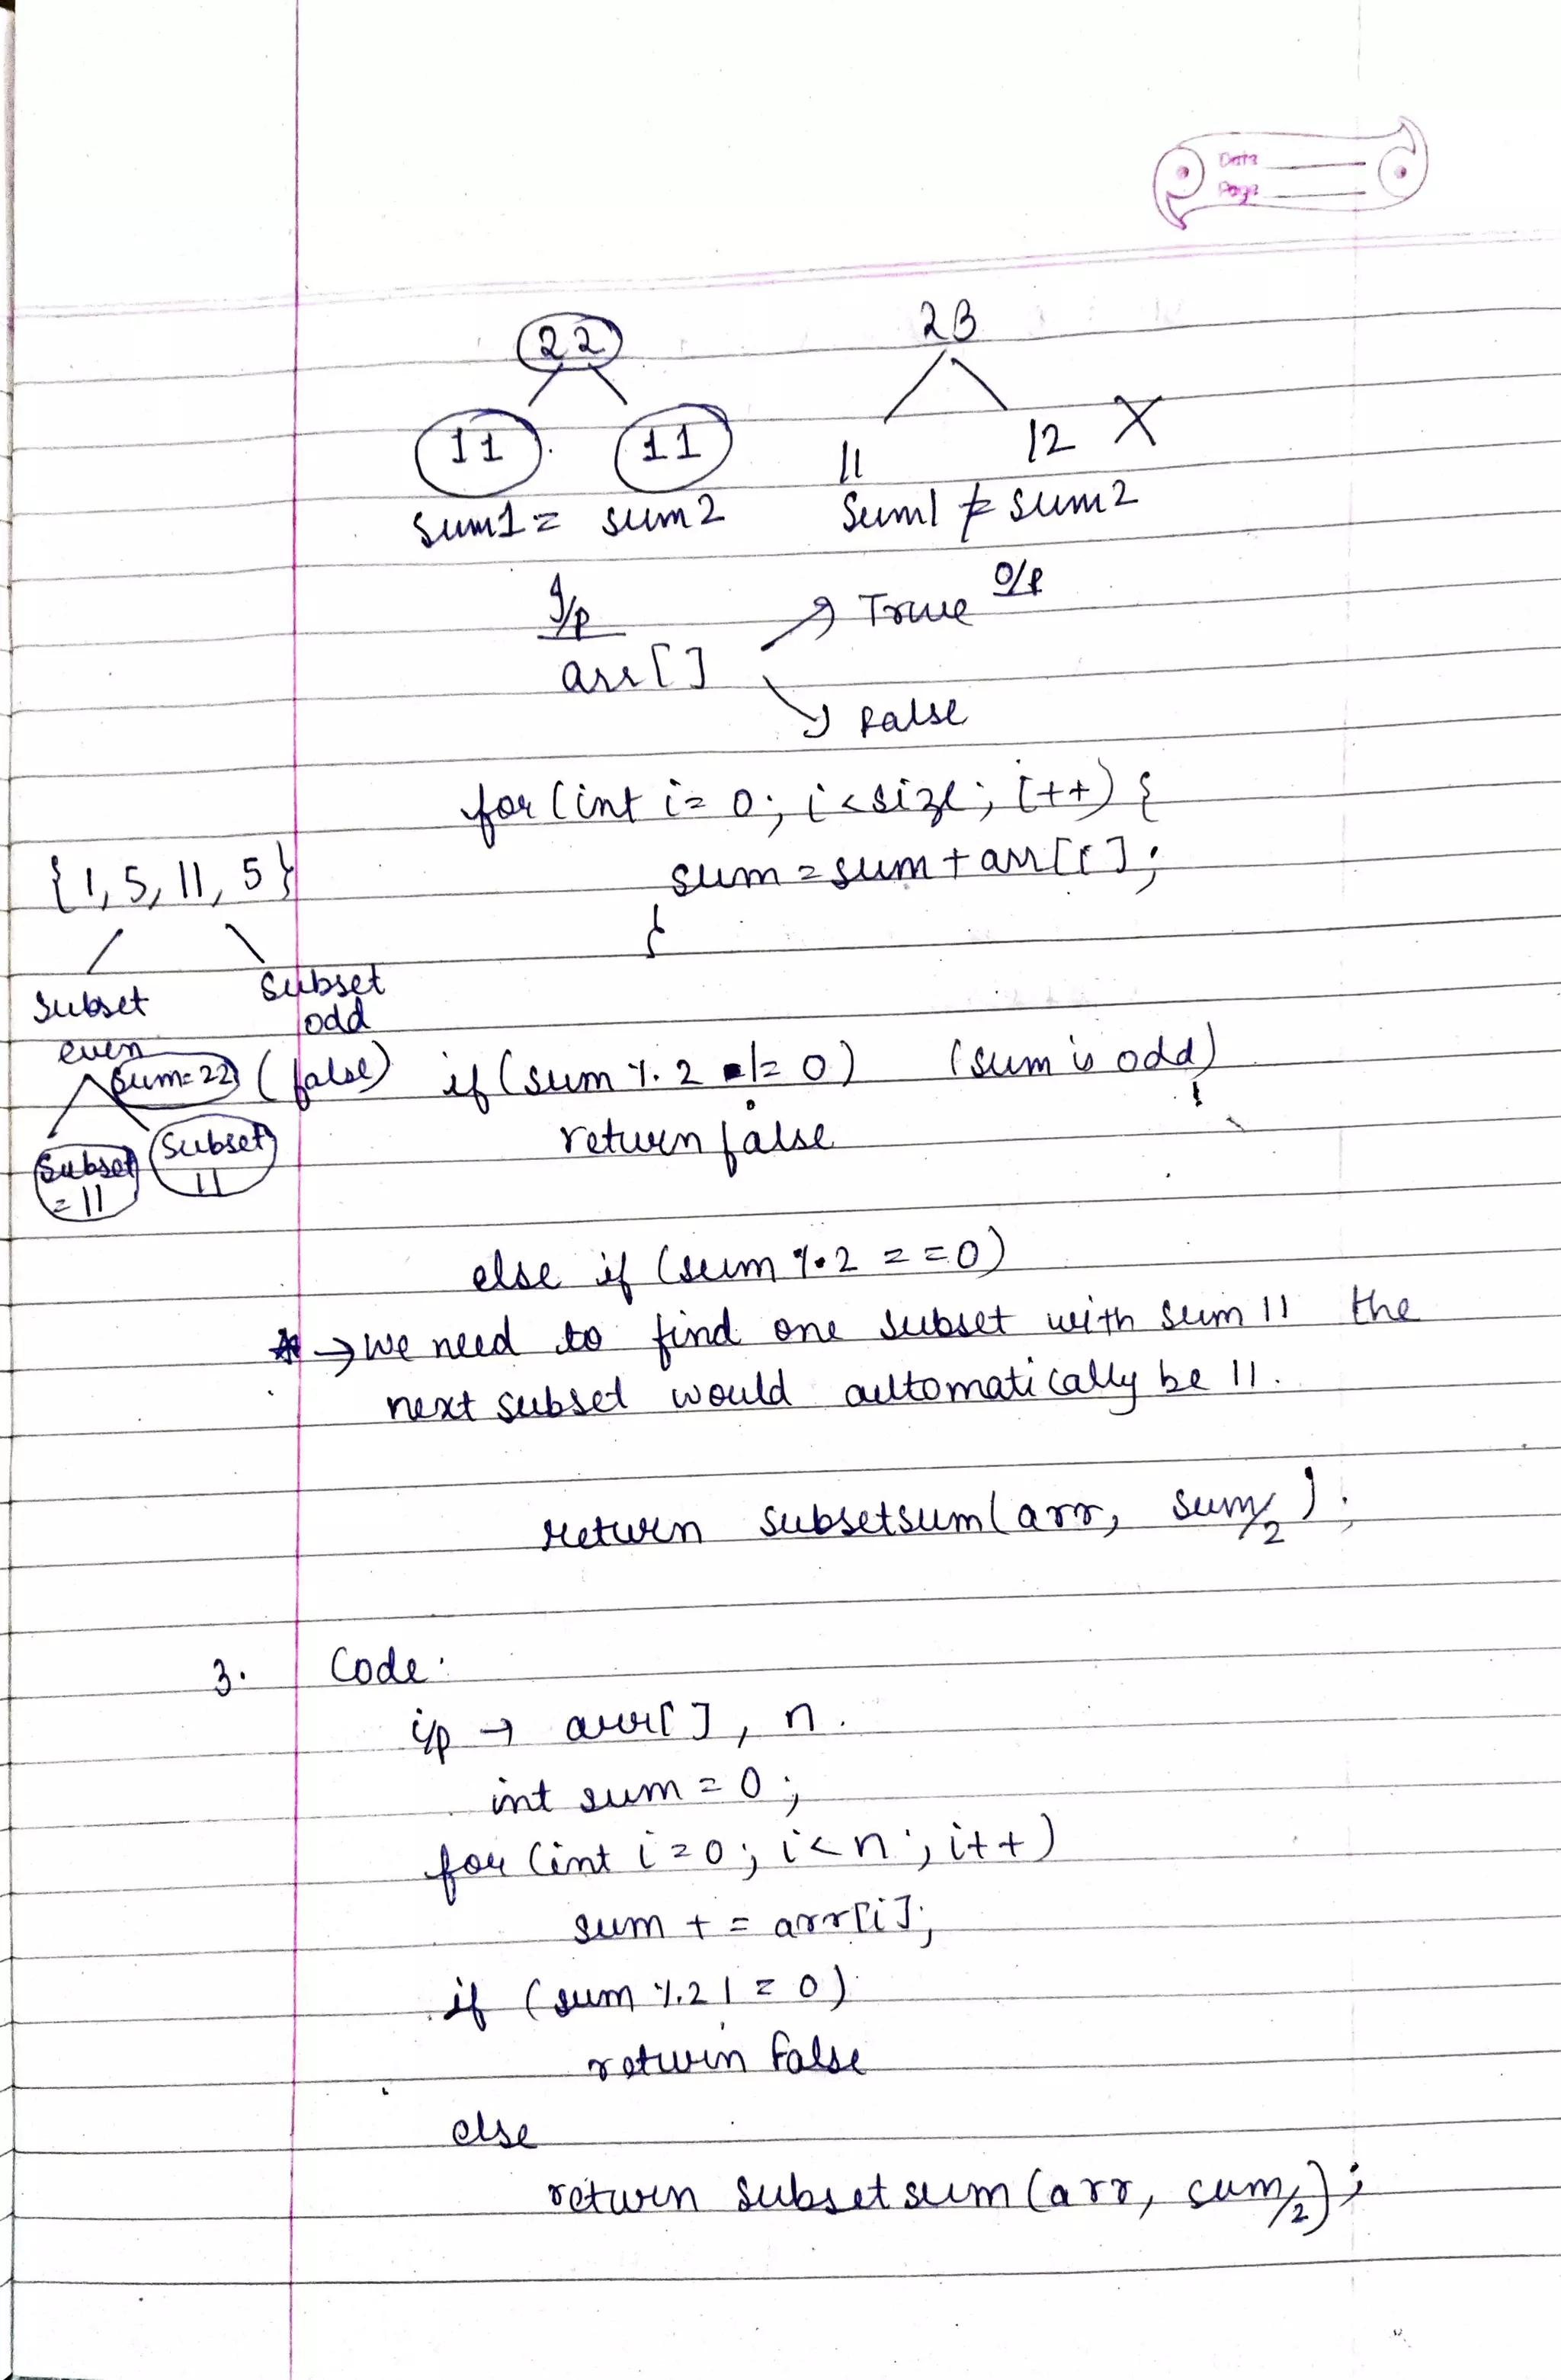 Date
Page
22 23
11 11 11 12 X
Sum1 = sum2 Sum1 ≠ sum2
I/p O/p
arr[] → True
→ False
for (int i = 0; i < size; i++) {
sum = sum + arr[i];
}
{1, 5, 11, 5}
subset subset
even odd
sum=22 (false) if (sum % 2 != 0) (sum is odd)
return false
subset subset
= 11 11
else if (sum % 2 == 0)
* → we need to find one subset with sum 11 the
next subset would automatically be 11.
return subsetsum(arr, sum/2);
3. Code:
i/p → arr[], n.
int sum = 0;
for (int i = 0; i < n; i++)
sum += arr[i];
if (sum % 2 != 0)
return False
else
return subsetsum(arr, sum/2);